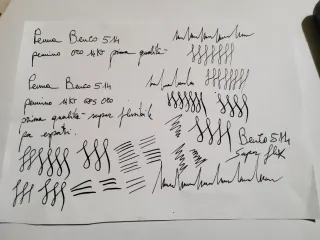 Penna Benco 514
pennino oro 14Kt prima qualità
Penna Benco 514
pennino 14Kt 585 oro
prima qualità - super flessibile
per esperti.
Benco 514
Super flex